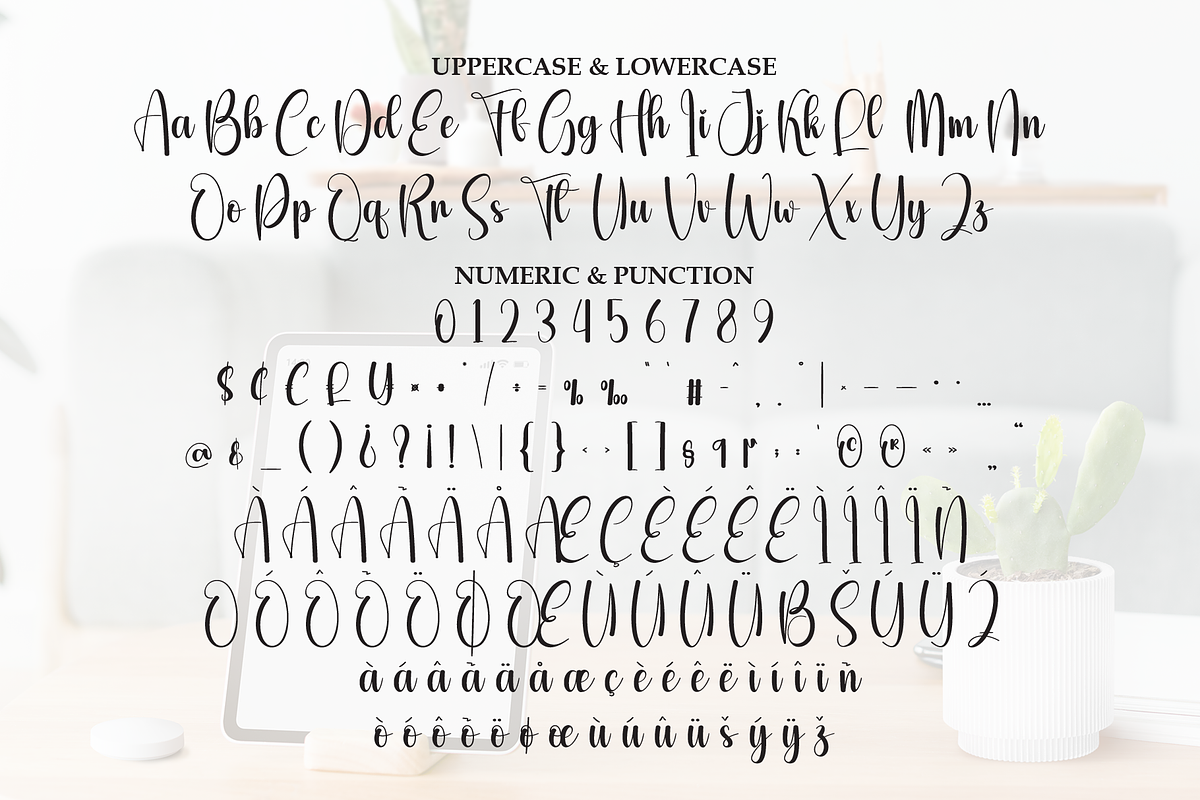 UPPERCASE & LOWERCASE
Aa Bb Cc Dd Ee Ff Gg Hh Ii Jj Kk Ll Mm Nn
Oo Pp Qq Rr Ss Tt Uu Vv Ww Xx Yy Zz
NUMERIC & PUNCTION
0 1 2 3 4 5 6 7 8 9
$ ¢ € £ ¥ ¤ • ˙ / ÷ = % ‰ " ' # - ˆ , . ° | × – — · · …
@ & _ ( ) ¿ ? ¡ ! \ | { } ‹ › [ ] § ¶ ; : ' © ® « » „ “
À Á Â Ã Ä Å Æ Ç È É Ê Ë Ì Í Î Ï Ñ
Ò Ó Ô Õ Ö Ø Œ Ù Ú Û Ü ß Š Ý Ÿ Ž
à á â ã ä å æ ç è é ê ë ì í î ï ñ
ò ó ô õ ö ø œ ù ú û ü š ý ÿ ž